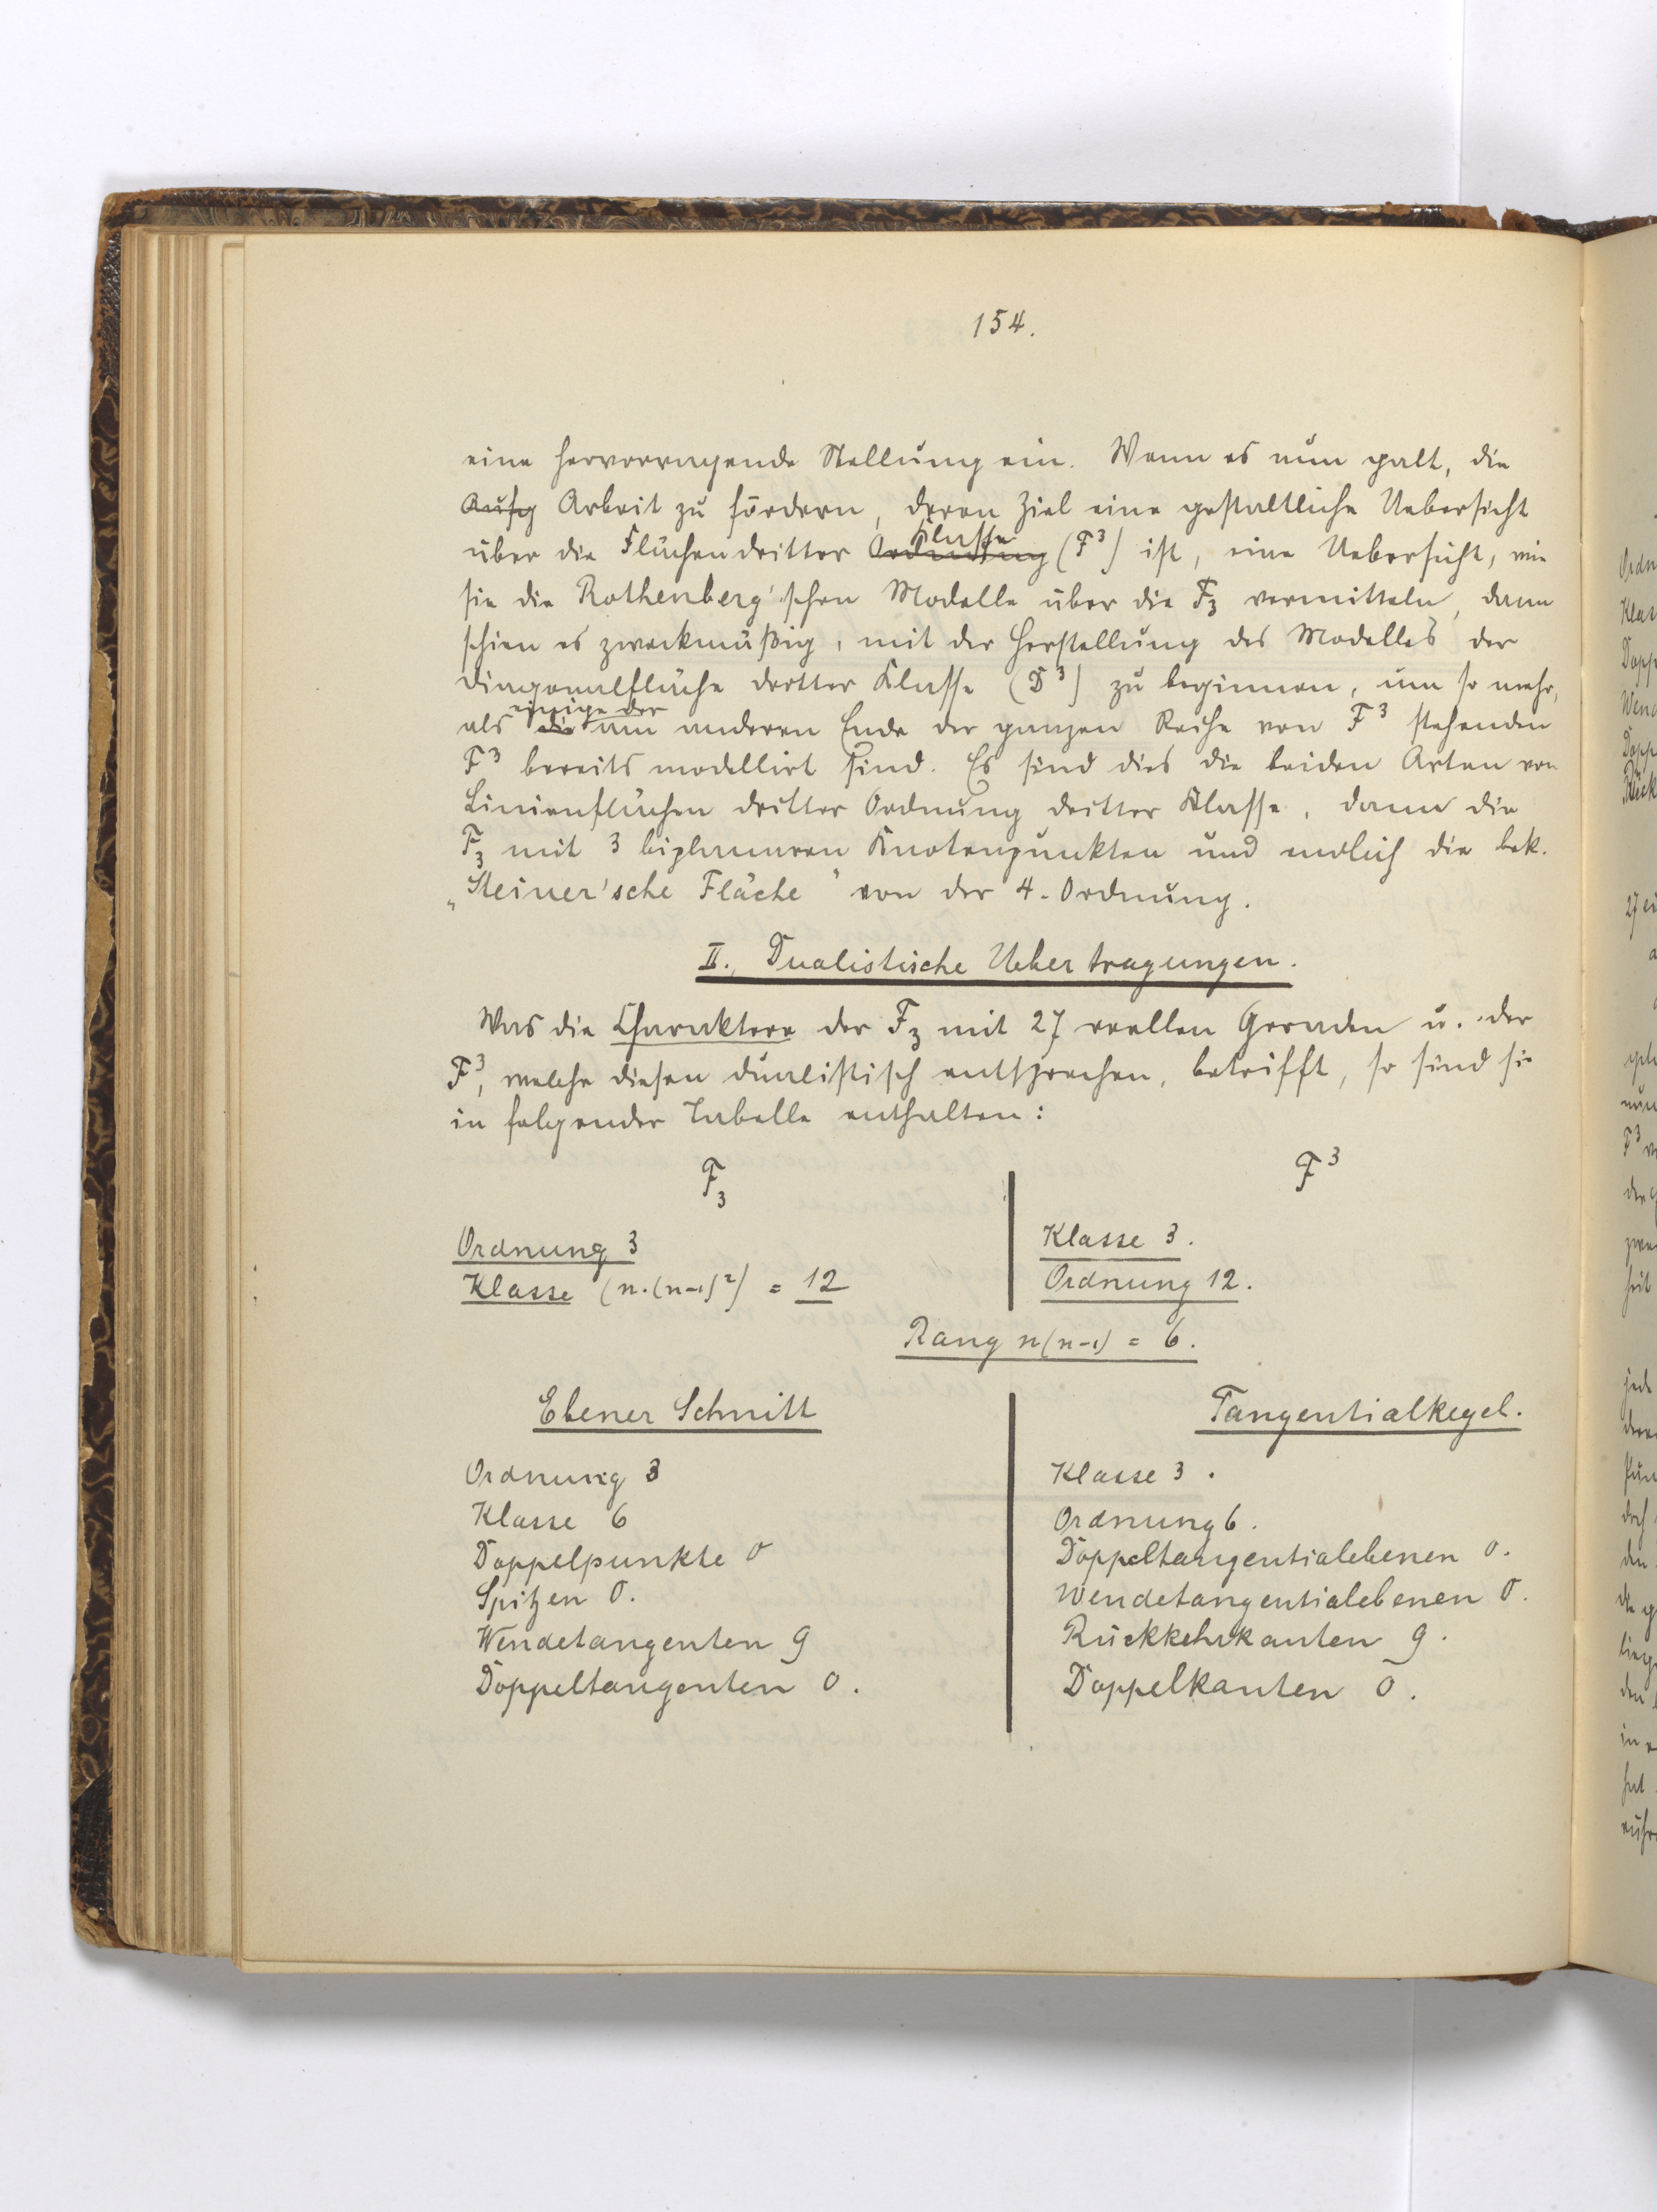 154.
eine hervorragende Stellung ein. Wenn es nun galt, die
Aufg Arbeit zu fördern, deren Ziel eine gestaltliche Uebersicht
Klasse
über die Flächen dritter Ordnung (F³) ist, eine Uebersicht, wie
sie die Rothenberg'schen Modelle über die F₃ vermitteln, dann
schien es zweckmäßig, mit der Herstellung des Modelles der
Diagonalfläche dritter Klasse (D³) zu beginnen, um so mehr,
einige der
als die am anderen Ende der ganzen Reihe von F³ stehenden
F³ bereits modellirt sind. Es sind dies die beiden Arten von
Linienflächen dritter Ordnung dritter Klasse, dann die
F₃ mit 3 biplanaren Knotenpunkten und endlich die bek.
„Steiner'sche Fläche" von der 4. Ordnung.
II. Dualistische Uebertragungen.
Was die Charaktere der F₃ mit 27 reellen Geraden u. der
F³, welche diesen dualistisch entsprechen, betrifft, so sind sie
in folgender Tabelle enthalten:
F₃ F³
Ordnung 3 Klasse 3.
Klasse (n.(n-1)²) = 12 Ordnung 12.
Rang n(n-1) = 6.
Ebener Schnitt Tangentialkegel.
Ordnung 3 Klasse 3.
Klasse 6 Ordnung 6.
Doppelpunkte 0 Doppeltangentialebenen 0.
Spitzen 0. Wendetangentialebenen 0.
Wendetangenten 9 Rückkehrkanten 9.
Doppeltangenten 0. Doppelkanten 0.